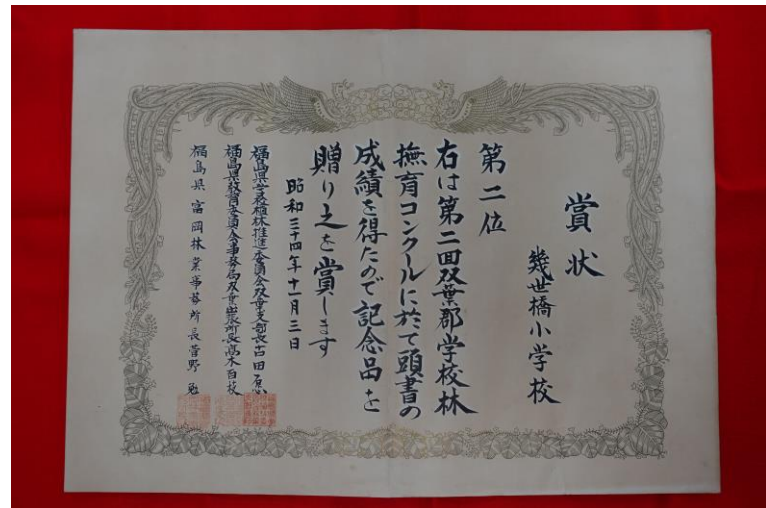 賞状
幾世橋小学校
第二位
右は第二回双葉郡学校林
撫育コンクールに於て頭書の
成績を得たので記念品を
贈り之を賞します
昭和三十四年十一月三日
福島県学校植林推進委員会双葉支部長古田
福島県教育委員会事務局双葉出張所長高木
福島県富岡林業事務所長菅野 勉